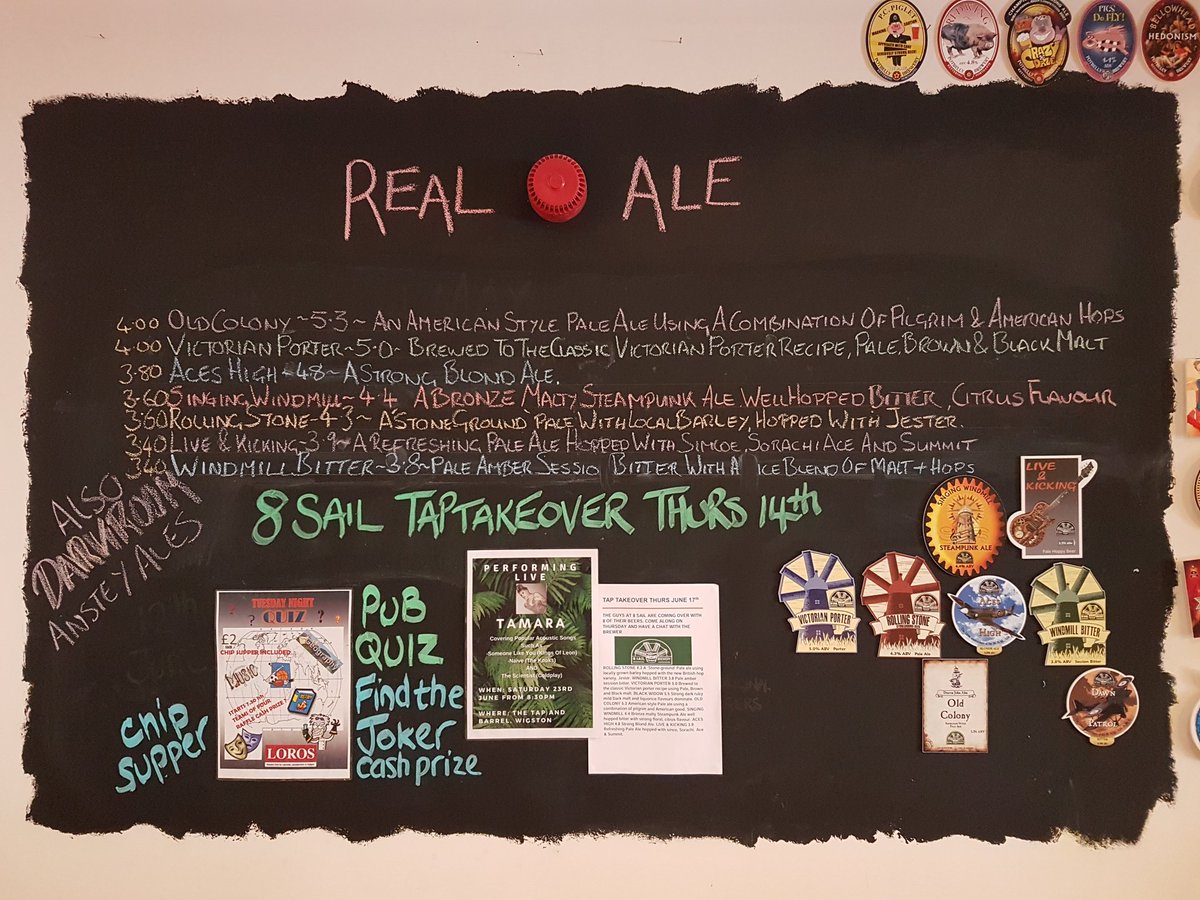 REAL ALE
4.00 OLD COLONY ~ 5.3 ~ AN AMERICAN STYLE PALE ALE USING A COMBINATION OF PILGRIM & AMERICAN HOPS
4.00 VICTORIAN PORTER ~ 5.0 ~ BREWED TO THE CLASSIC VICTORIAN PORTER RECIPE, PALE, BROWN & BLACK MALT
3.80 ACES HIGH ~ 4.8 ~ A STRONG BLOND ALE.
3.60 SINGING WINDMILL ~ 4.4 A BRONZE MALTY STEAMPUNK ALE WELL HOPPED BITTER, CITRUS FLAVOUR
3.60 ROLLING STONE ~ 4.3 ~ A STONE GROUND PALE WITH LOCAL BARLEY, HOPPED WITH JESTER.
3.40 LIVE & KICKING ~ 3.9 ~ A REFRESHING PALE ALE HOPPED WITH SIMCOE, SORACHI ACE AND SUMMIT
3.40 WINDMILL BITTER ~ 3.8 ~ PALE AMBER SESSIO BITTER WITH A NICE BLEND OF MALT + HOPS
8 SAIL TAP TAKEOVER THURS 14th
ALSO
DARKROOM
ANSTEY ALES
chip
supper
TUESDAY NIGHT
? QUIZ ?
£2
CHIP SUPPER INCLUDED
LOROS
PUB
QUIZ
Find the
Joker
cash prize
PERFORMING
LIVE
TAMARA
Covering Popular Acoustic Songs
Such As
Someone Like You (Kings Of Leon)
Naive (The Kooks)
AND
The Scientist (Coldplay)
WHEN: SATURDAY 23RD
JUNE FROM 8.30PM
WHERE: THE TAP AND
BARREL, WIGSTON
TAP TAKEOVER THURS JUNE 17th
THE GUYS AT 8 SAIL ARE COMING OVER WITH
8 OF THEIR BEERS. COME ALONG ON
THURSDAY AND HAVE A CHAT WITH THE
BREWER
P.C. PIGLET
CRAZY
PIGS
Do FLY!
BELLOWHEAD
HEDONISM
SINGING WINDMILL
STEAMPUNK ALE
LIVE
&
KICKING
Pale Hoppy Beer
VICTORIAN PORTER
5.0% ABV Porter
ROLLING STONE
4.3% ABV Pale Ale
ACES
HIGH
WINDMILL BITTER
3.8% ABV Session Bitter
Old
Colony
DAWN
PATROL